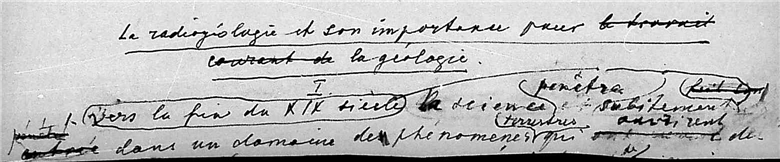 La radiogéologie et son importance pour le travail
courant de la géologie.
I pénétra
Vers la fin du XIX siècle la science et subitement
terrestres ouvrirent
dans un domaine des phénomènes qui de